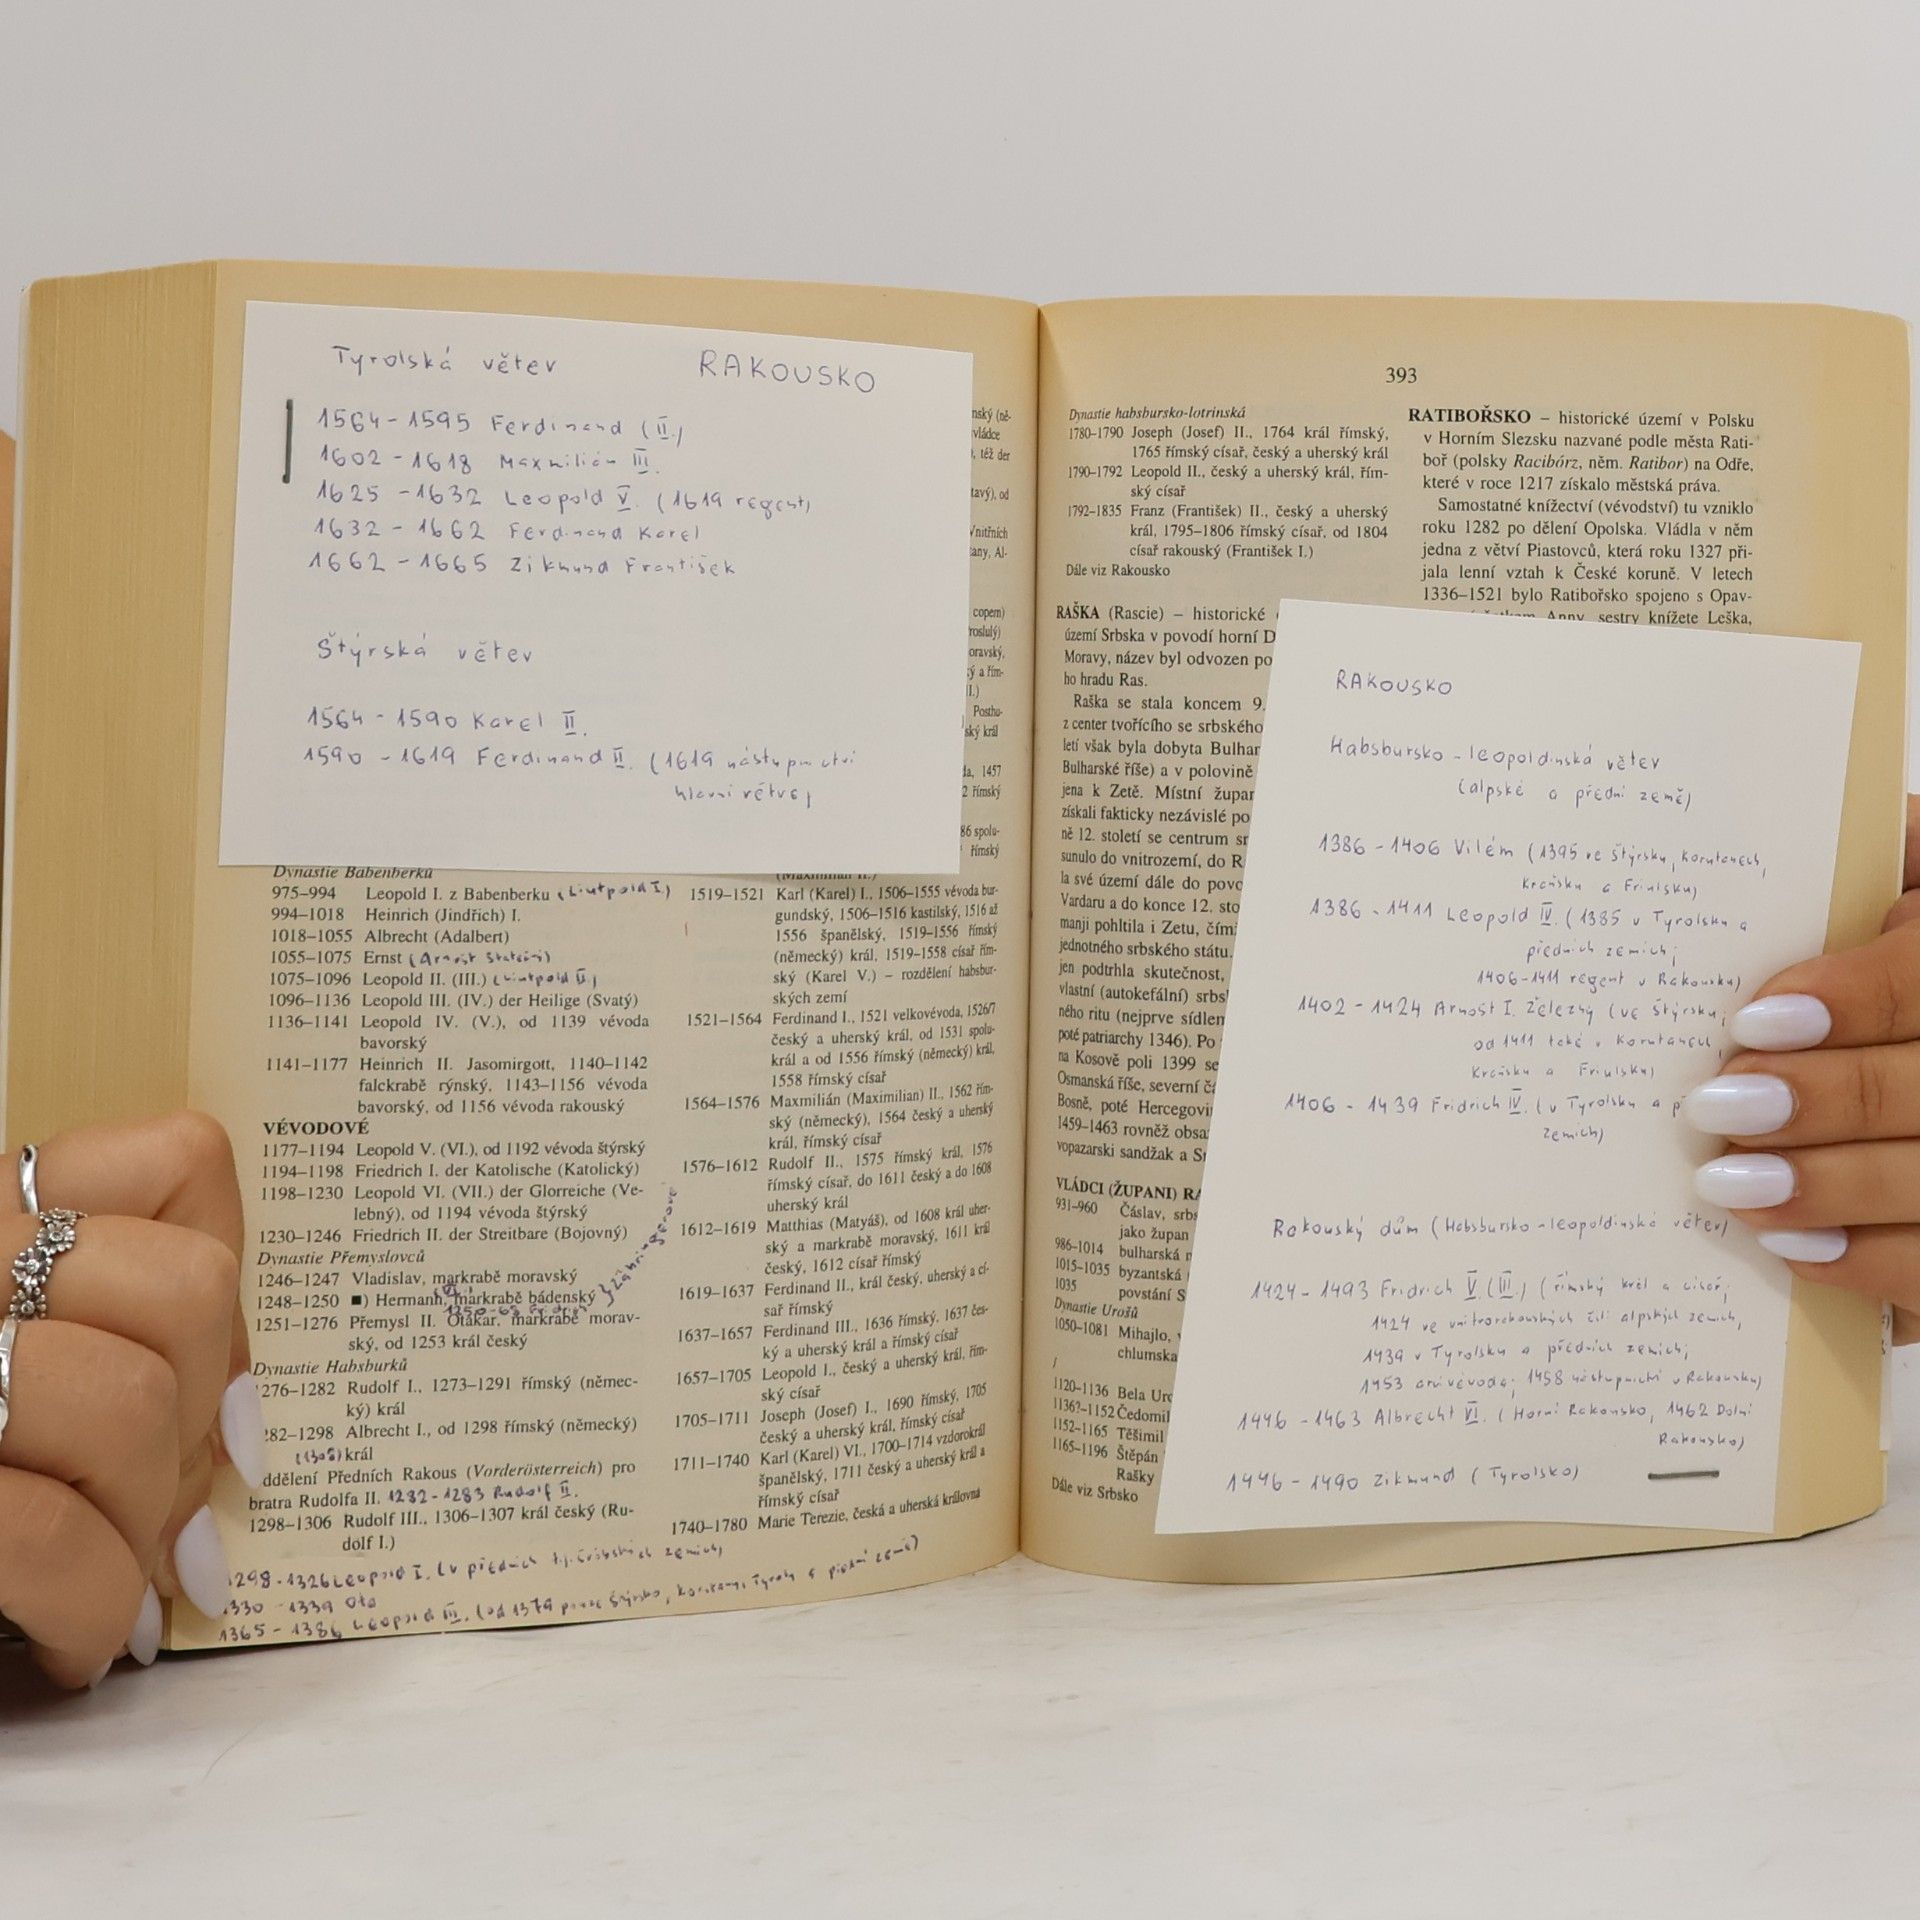 Tyrolská větev RAKOUSKO
1564-1595 Ferdinand (II.)
1602-1618 Maxmilián III.
1625-1632 Leopold V. (1619 regent)
1632-1662 Ferdinand Karel
1662-1665 Zikmund František
Štýrská větev
1564-1590 Karel II.
1590-1619 Ferdinand II. (1619 nástupnictví
hlavní větve)
Dynastie Babenberků
975–994 Leopold I. z Babenberku (Liutpold I.)
994–1018 Heinrich (Jindřich) I.
1018–1055 Albrecht (Adalbert)
1055–1075 Ernst (Arnošt Statečný)
1075–1096 Leopold II. (III.) (Liutpold II.)
1096–1136 Leopold III. (IV.) der Heilige (Svatý)
1136–1141 Leopold IV. (V.), od 1139 vévoda
bavorský
1141–1177 Heinrich II. Jasomirgott, 1140–1142
falckrabě rýnský, 1143–1156 vévoda
bavorský, od 1156 vévoda rakouský
VÉVODOVÉ
1177–1194 Leopold V. (VI.), od 1192 vévoda štýrský
1194–1198 Friedrich I. der Katolische (Katolický)
1198–1230 Leopold VI. (VII.) der Glorreiche (Ve-
lebný), od 1194 vévoda štýrský
1230–1246 Friedrich II. der Streitbare (Bojovný)
Dynastie Přemyslovců
1246–1247 Vladislav, markrabě moravský
1248–1250 ■) Hermann, markrabě bádenský
1250-63 Fridrich
1251–1276 Přemysl II. Otakar, markrabě morav-
ský, od 1253 král český
Dynastie Habsburků
1276–1282 Rudolf I., 1273–1291 římský (němec-
ký) král
282–1298 Albrecht I., od 1298 římský (německý)
(1308) král
ddělení Předních Rakous (Vorderösterreich) pro
bratra Rudolfa II. 1282-1283 Rudolf II.
1298–1306 Rudolf III., 1306–1307 král český (Ru-
dolf I.)
1298-1326 Leopold I. (v předních zemích)
1330-1339 Ota
1365-1386 Leopold III. (od 1379 Štýrsko, Korutany, Tyroly a přední země)
nský (ně-
vládce
, též der
tavý), od
Vnitřních
tany, Al-
copem)
roslulý)
oravský,
ký a řím-
II.)
Posthu-
ský král
da, 1457
2 římský
86 spolu-
římský
(Maximilian II.)
1519–1521 Karl (Karel) I., 1506–1555 vévoda bur-
gundský, 1506–1516 kastilský, 1516 až
1556 španělský, 1519–1556 římský
(německý) král, 1519–1558 císař řím-
ský (Karel V.) – rozdělení habsbur-
ských zemí
1521–1564 Ferdinand I., 1521 velkovévoda, 1526/7
český a uherský král, od 1531 spolu-
král a od 1556 římský (německý) král,
1558 římský císař
1564–1576 Maxmilián (Maximilian) II., 1562 řím-
ský (německý), 1564 český a uherský
král, římský císař
1576–1612 Rudolf II., 1575 římský král, 1576
římský císař, do 1611 český a do 1608
uherský král
1612–1619 Matthias (Matyáš), od 1608 král uher-
ský a markrabě moravský, 1611 král
český, 1612 císař římský
1619–1637 Ferdinand II., král český, uherský a cí-
sař římský
1637–1657 Ferdinand III., 1636 římský, 1637 čes-
ký a uherský král a římský císař
1657–1705 Leopold I., český a uherský král, řím-
ský císař
1705–1711 Joseph (Josef) I., 1690 římský, 1705
český a uherský král, římský císař
1711–1740 Karl (Karel) VI., 1700–1714 vzdorokrál
španělský, 1711 český a uherský král a
římský císař
1740–1780 Marie Terezie, česká a uherská královna
393
Dynastie habsbursko-lotrinská
1780–1790 Joseph (Josef) II., 1764 král římský,
1765 římský císař, český a uherský král
1790–1792 Leopold II., český a uherský král, řím-
ský císař
1792–1835 Franz (František) II., český a uherský
král, 1795–1806 římský císař, od 1804
císař rakouský (František I.)
Dále viz Rakousko
RAŠKA (Rascie) – historické
území Srbska v povodí horní D
Moravy, název byl odvozen po
ho hradu Ras.
Raška se stala koncem 9.
z center tvořícího se srbského
letí však byla dobyta Bulhar
Bulharské říše) a v polovině
jena k Zetě. Místní župan
získali fakticky nezávislé po
ně 12. století se centrum sr
sunulo do vnitrozemí, do R
la své území dále do povo
Vardaru a do konce 12. sto
manji pohltila i Zetu, čímž
jednotného srbského státu.
jen podtrhla skutečnost,
vlastní (autokefální) srbs
ného ritu (nejprve sídlem
poté patriarchy 1346). Po
na Kosově poli 1399 se
Osmanská říše, severní čá
Bosně, poté Hercegovin
1459–1463 rovněž obsa
vopazarski sandžak a S
VLÁDCI (ŽUPANI) RA
931–960 Čáslav, srbs
jako župan
986–1014 bulharská n
1015–1035 byzantská
1035 povstání S
Dynastie Urošů
1050–1081 Mihajlo,
chlumska
1120–1136 Bela Uro
1136?–1152 Čedomil
1152–1165 Těšimil
1165–1196 Štěpán
Rašky
Dále viz Srbsko
RATIBOŘSKO – historické území v Polsku
v Horním Slezsku nazvané podle města Rati-
boř (polsky Racibórz, něm. Ratibor) na Odře,
které v roce 1217 získalo městská práva.
Samostatné knížectví (vévodství) tu vzniklo
roku 1282 po dělení Opolska. Vládla v něm
jedna z větví Piastovců, která roku 1327 při-
jala lenní vztah k České koruně. V letech
1336–1521 bylo Ratibořsko spojeno s Opav-
Anny, sestry knížete Leška,
RAKOUSKO
Habsbursko-leopoldinská větev
(alpské a přední země)
1386-1406 Vilém (1395 ve Štýrsku, Korutanech,
Kraňsku a Friulsku)
1386-1411 Leopold IV. (1385 v Tyrolsku a
předních zemích;
1406-1411 regent v Rakousku)
1402-1424 Arnošt I. Železný (ve Štýrsku;
od 1411 také v Korutanech,
Kraňsku a Friulsku)
1406-1439 Fridrich IV. (v Tyrolsku a př
zemích)
Rakouský dům (Habsbursko-leopoldinská větev)
1424-1493 Fridrich V. (III.) (římský král a císař;
1424 ve vnitrorakouských čili alpských zemích,
1439 v Tyrolsku a předních zemích;
1453 arcivévoda; 1458 nástupnictví v Rakousku)
1446-1463 Albrecht VI. (Horní Rakousko, 1462 Dolní
Rakousko)
1446-1490 Zikmund (Tyrolsko)